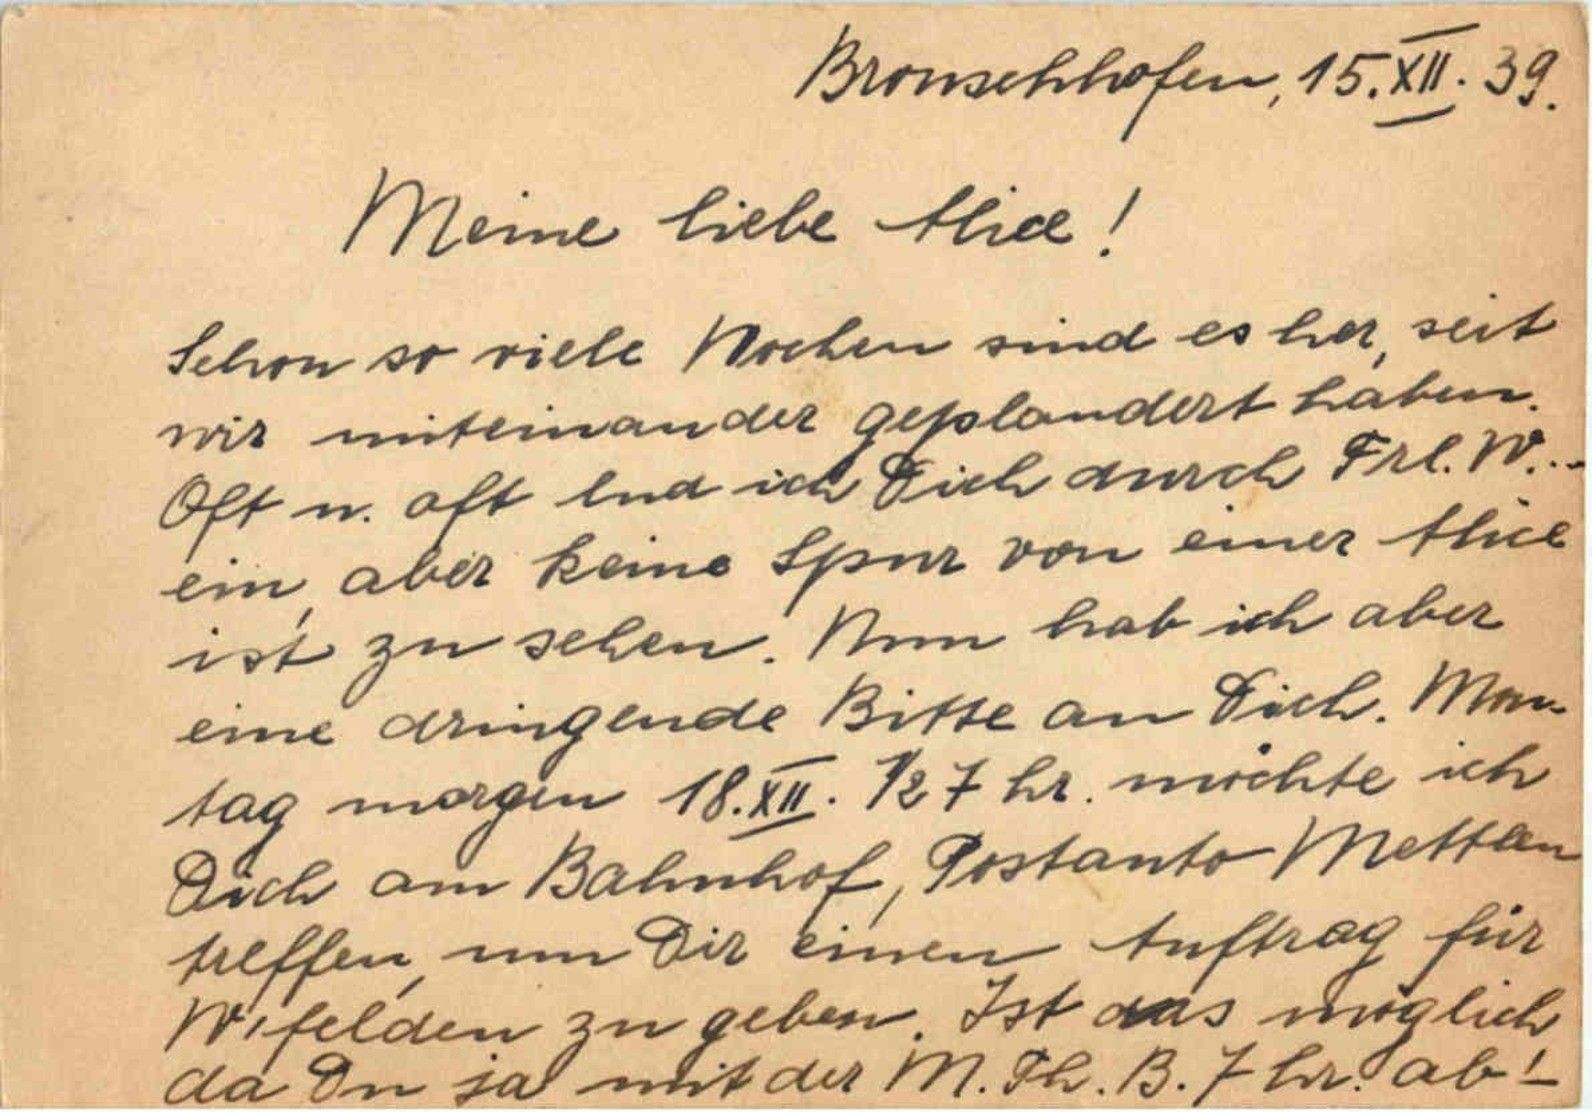 Bronschhofen, 15. XII. 39.
Meine liebe Alice!
Schon so viele Wochen sind es her, seit
wir miteinander geplaudert haben.
Oft u. oft lud ich Dich durch Frl. W...
ein, aber keine Spur von einer Alice
ist zu sehen. Nun hab ich aber
eine dringende Bitte an Dich. Mon-
tag morgen 18. XII. 1/2 7 hr. möchte ich
Dich am Bahnhof, Postauto Mettlen
treffen, um Dir einen Auftrag für
W'felden zu geben. Ist das möglich,
da Du ja mit der M. Th. B. 7 hr. ab-